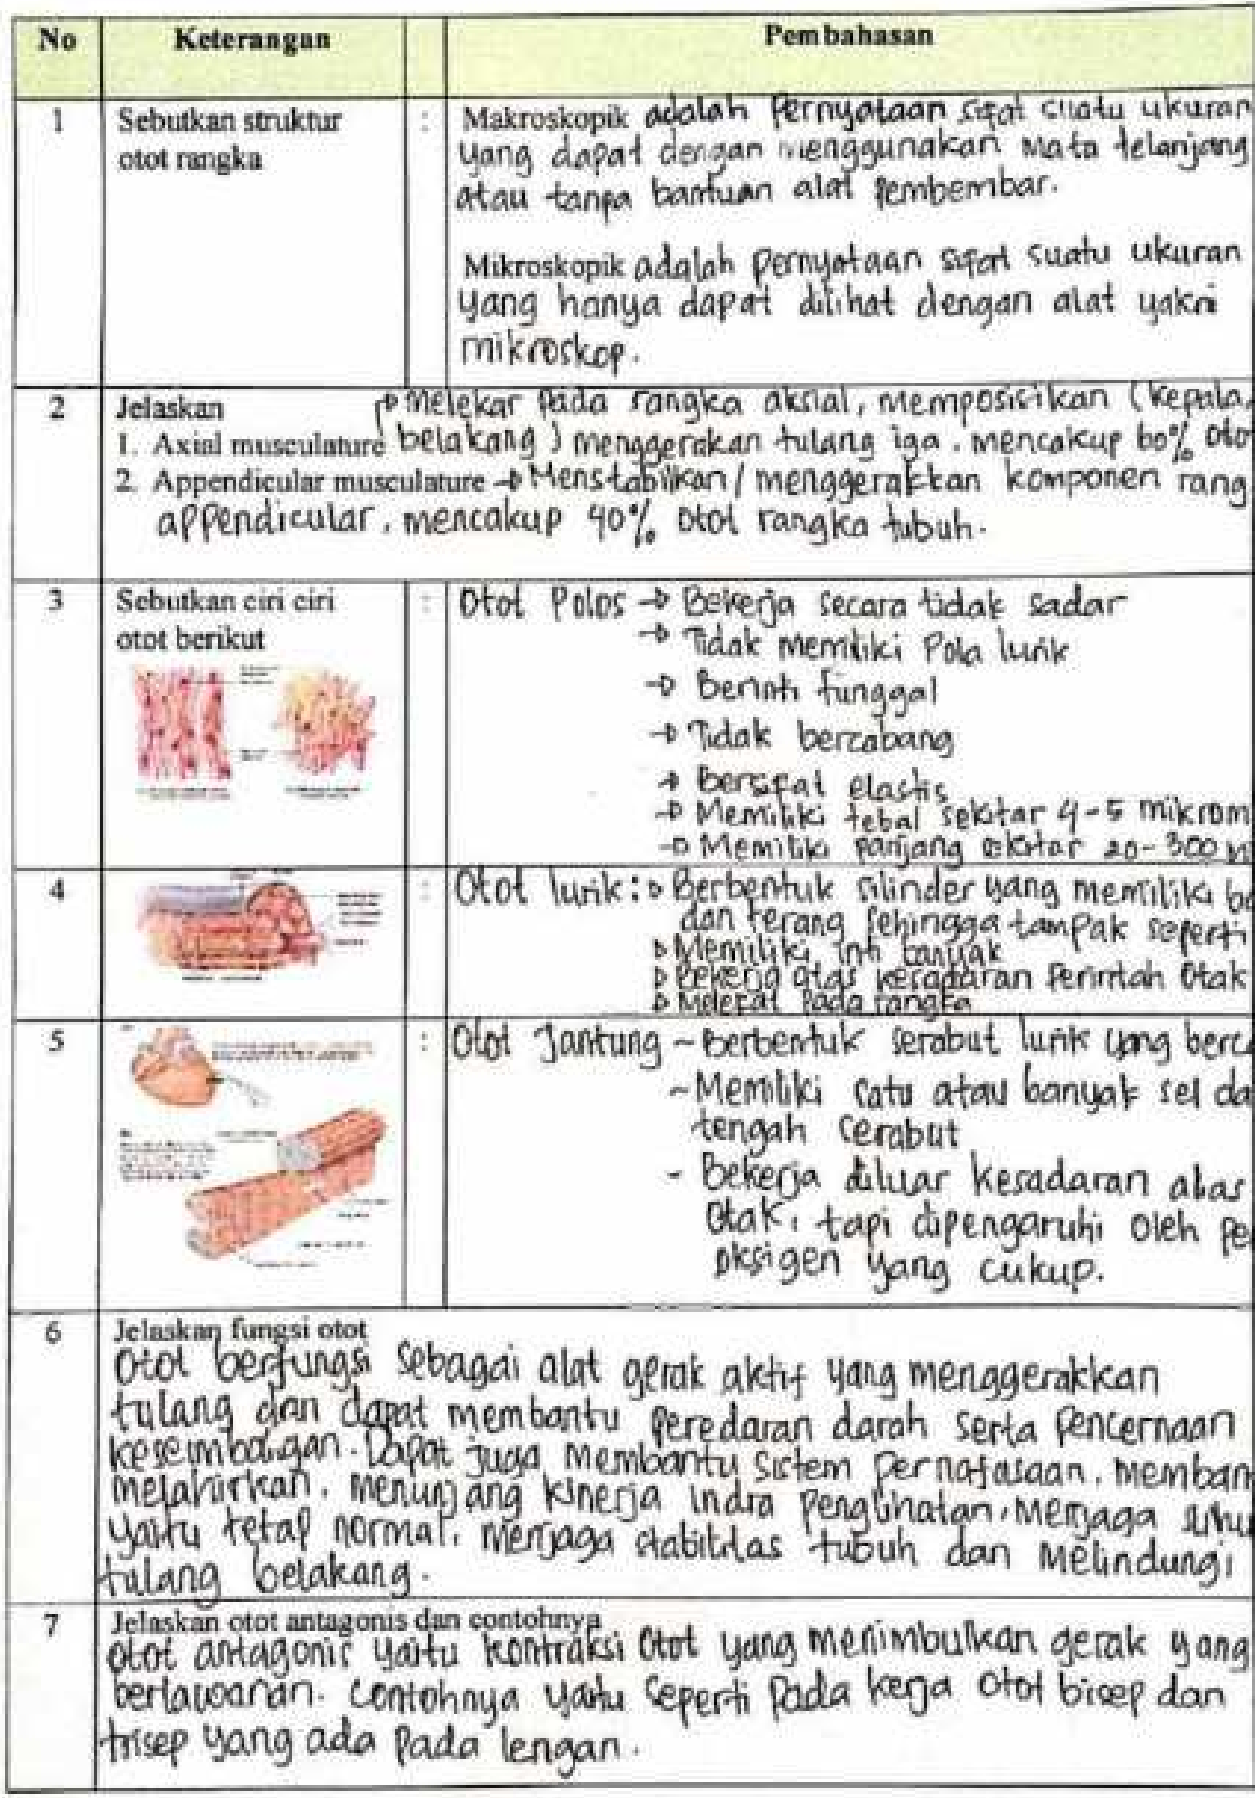 No Keterangan Pembahasan
1 Sebutkan struktur otot rangka : Makroskopik adalah Pernyataan sifat suatu ukuran
yang dapat dengan menggunakan mata telanjang
atau tanpa bantuan alat pembembar.
Mikroskopik adalah pernyataan sifat suatu ukuran
yang hanya dapat dilihat dengan alat yakni
mikroskop.
2 Jelaskan
1. Axial musculature → Melekar pada rangka aksial, memposisikan (kepala,
belakang) menggerakan tulang iga. mencakup 60% oto
2. Appendicular musculature → Menstabilkan / menggerakkan komponen rang
appendicular, mencakup 40% otot rangka tubuh.
3 Sebutkan ciri ciri otot berikut : Otot Polos → Bekerja secara tidak sadar
→ Tidak memiliki Pola lurik
→ Berinti tunggal
→ Tidak bercabang
→ Bersifat elastis
→ Memiliki tebal sekitar 4-5 mikrom
→ Memiliki panjang sekitar 20-300
4 : Otot lurik: Berbentuk silinder yang memiliki
dan terang sehingga tampak seperti
Memiliki inti banyak
Bekerja atas kesadaran Perintah Otak
Melekat Pada rangka
5 : Otot Jantung ~ Berbentuk serabut lurik yang berc
~ Memiliki satu atau banyak sel da
tengah serabut
- Bekerja diluar kesadaran atas
Otak, tapi dipengaruhi oleh pe
oksigen yang cukup.
6 Jelaskan fungsi otot
Otot berfungsi sebagai alat gerak aktif yang menggerakkan
tulang dan dapat membantu peredaran darah serta pencernaan
keseimbangan. Dapat juga membantu sistem pernafasaan, memban
melahirkan, menunjang kinerja indra penglihatan, menjaga suhu
yaitu tetap normal, menjaga stabilitas tubuh dan melindungi
tulang belakang.
7 Jelaskan otot antagonis dan contohnya
otot antagonis yaitu kontraksi otot yang menimbulkan gerak yang
berlawanan. Contohnya yaitu seperti pada kerja otot bisep dan
trisep yang ada pada lengan.